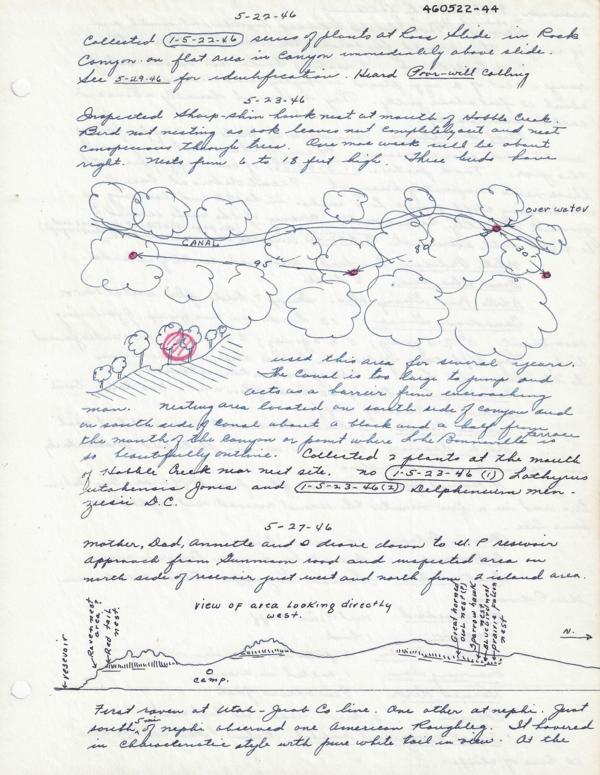 5-22-46
460522-44
Collected 1-5-22-46 series of plants at Ross Slide in Rock
Canyon on flat area in Canyon immediately above slide.
See 5-29-46 for identification. Heard Poor-will calling
5-23-46
Inspected Sharp-shin hawk nest at mouth of Hobble Creek.
Bird not nesting as oak leaves not completely out and nest
conspicuous through trees. One more week will be about
right. Nests from 6 to 18 feet high. These birds have
over water
CANAL
95
80
30'
used this area for several years.
The Canal is too large to jump and
acts as a barrier from encroaching
man. Nesting area located on south side of canyon and
on south side of canal about a block and a half from
the mouth of the Canyon or point where Lake Bonneville terrace is
so beautifully outline. Collected 2 plants at the mouth
of Hobble Creek near nest site. no 1-5-23-46 (1) Lathyrus
utahensis Jones and 1-5-23-46(2) Delphinium men-
ziesii D.C.
5-27-46
Mother, Dad, Annette and I drove down to U.P resevoir
approach from Gunnison road and inspected area on
north side of resevoir just west and north from 2 island area.
view of area looking directly
west.
reservoir
Raven nest
area?
Red tail
nest.
camp.
Great horned
owl nest(?)
Sparrow hawk
nest
Bluebird nest
prairie falcon
nest
N.
First raven at Utah-Juab Co line. One other at nephi. Just
south 5 mi of nephi observed one American Roughleg. It hovered
in chracteristic style with pure white tail in view. At the